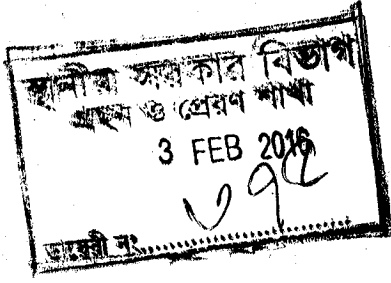 স্থানীয় সরকার বিভাগ
গ্রহণ ও প্রেরণ শাখা
3 FEB 2016
৩৭৫
ডায়েরী নং